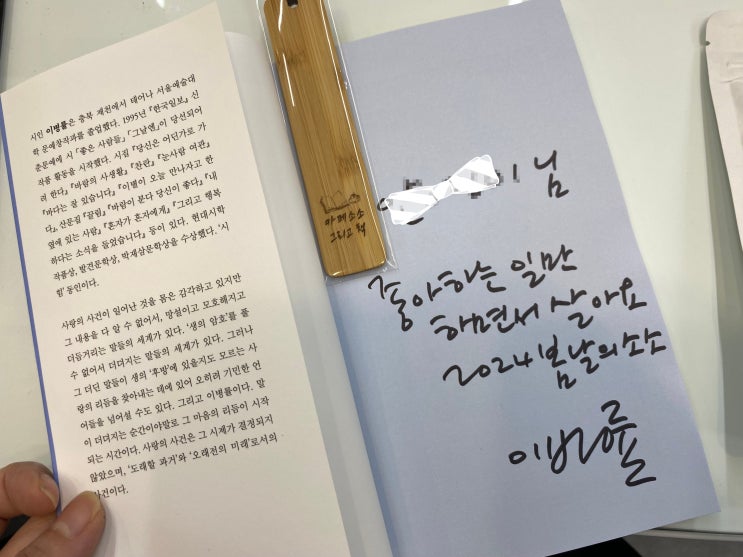 시인 이병률은 충북 제천에서 태어나 서울예술대
학 문예창작과를 졸업했다. 1995년 『한국일보』 신
춘문예에 시 「좋은 사람들」 「그날엔」이 당선되어
작품 활동을 시작했다. 시집 『당신은 어딘가로 가
려 한다』 『바람의 사생활』 『찬란』 『눈사람 여관』
『바다는 잘 있습니다』 『이별이 오늘 만나자고 한
다』, 산문집 『끌림』 『바람이 분다 당신이 좋다』 『내
옆에 있는 사람』 『혼자가 혼자에게』 『그리고 행복
하다는 소식을 들었습니다』 등이 있다. 현대시학
작품상, 발견문학상, 박재삼문학상을 수상했다. ‘시
힘’ 동인이다.
사랑의 사건이 일어난 것을 몸은 감각하고 있지만
그 내용을 다 알 수 없어서, 망설이고 모호해지고
더듬거리는 말들의 세계가 있다. ‘생의 암호’를 풀
수 없어서 더뎌지는 말들의 세계가 있다. 그러나
그 더딘 말들이 생의 ‘후방’에 있을지도 모르는 사
랑의 리듬을 찾아내는 데에 있어 오히려 기민한 언
어들을 넘어설 수도 있다. 그리고 이병률이다. 말
이 더뎌지는 순간이야말로 그 마음의 리듬이 시작
되는 시간이다. 사랑의 사건은 그 시제가 결정되지
않았으며, ‘도래할 과거’와 ‘오래전의 미래’로서의
사건이다.
카페소소
그리고 책
님
좋아하는 일만
하면서 살아요
2024 봄날의 소소
이병률